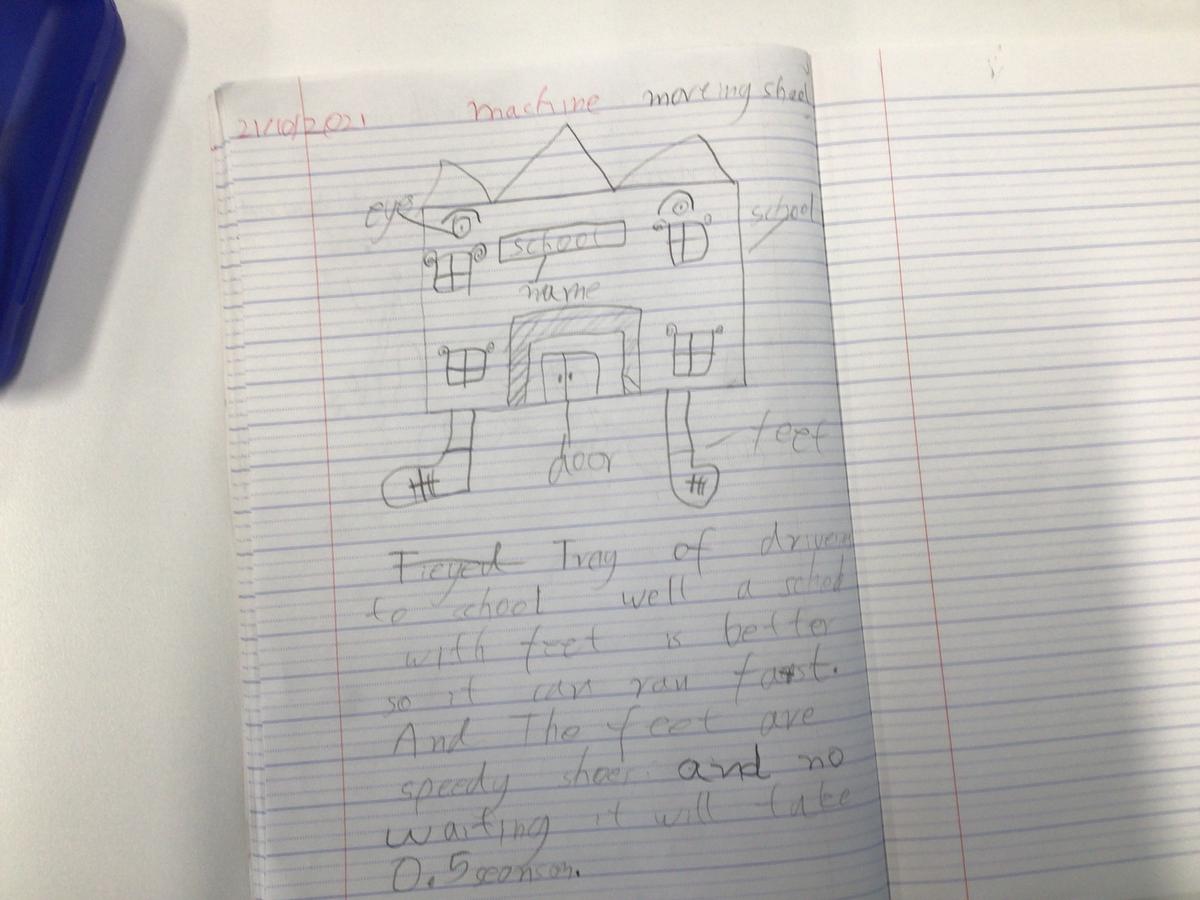 21/10/2021 machine moveing shool
eye
school
school
name
feet
door
Tieyed Tray of driveing
to school well a school
with feet is better
so it can ran fast.
And The feet are
speedy shoes and no
waiting it will take
0.5